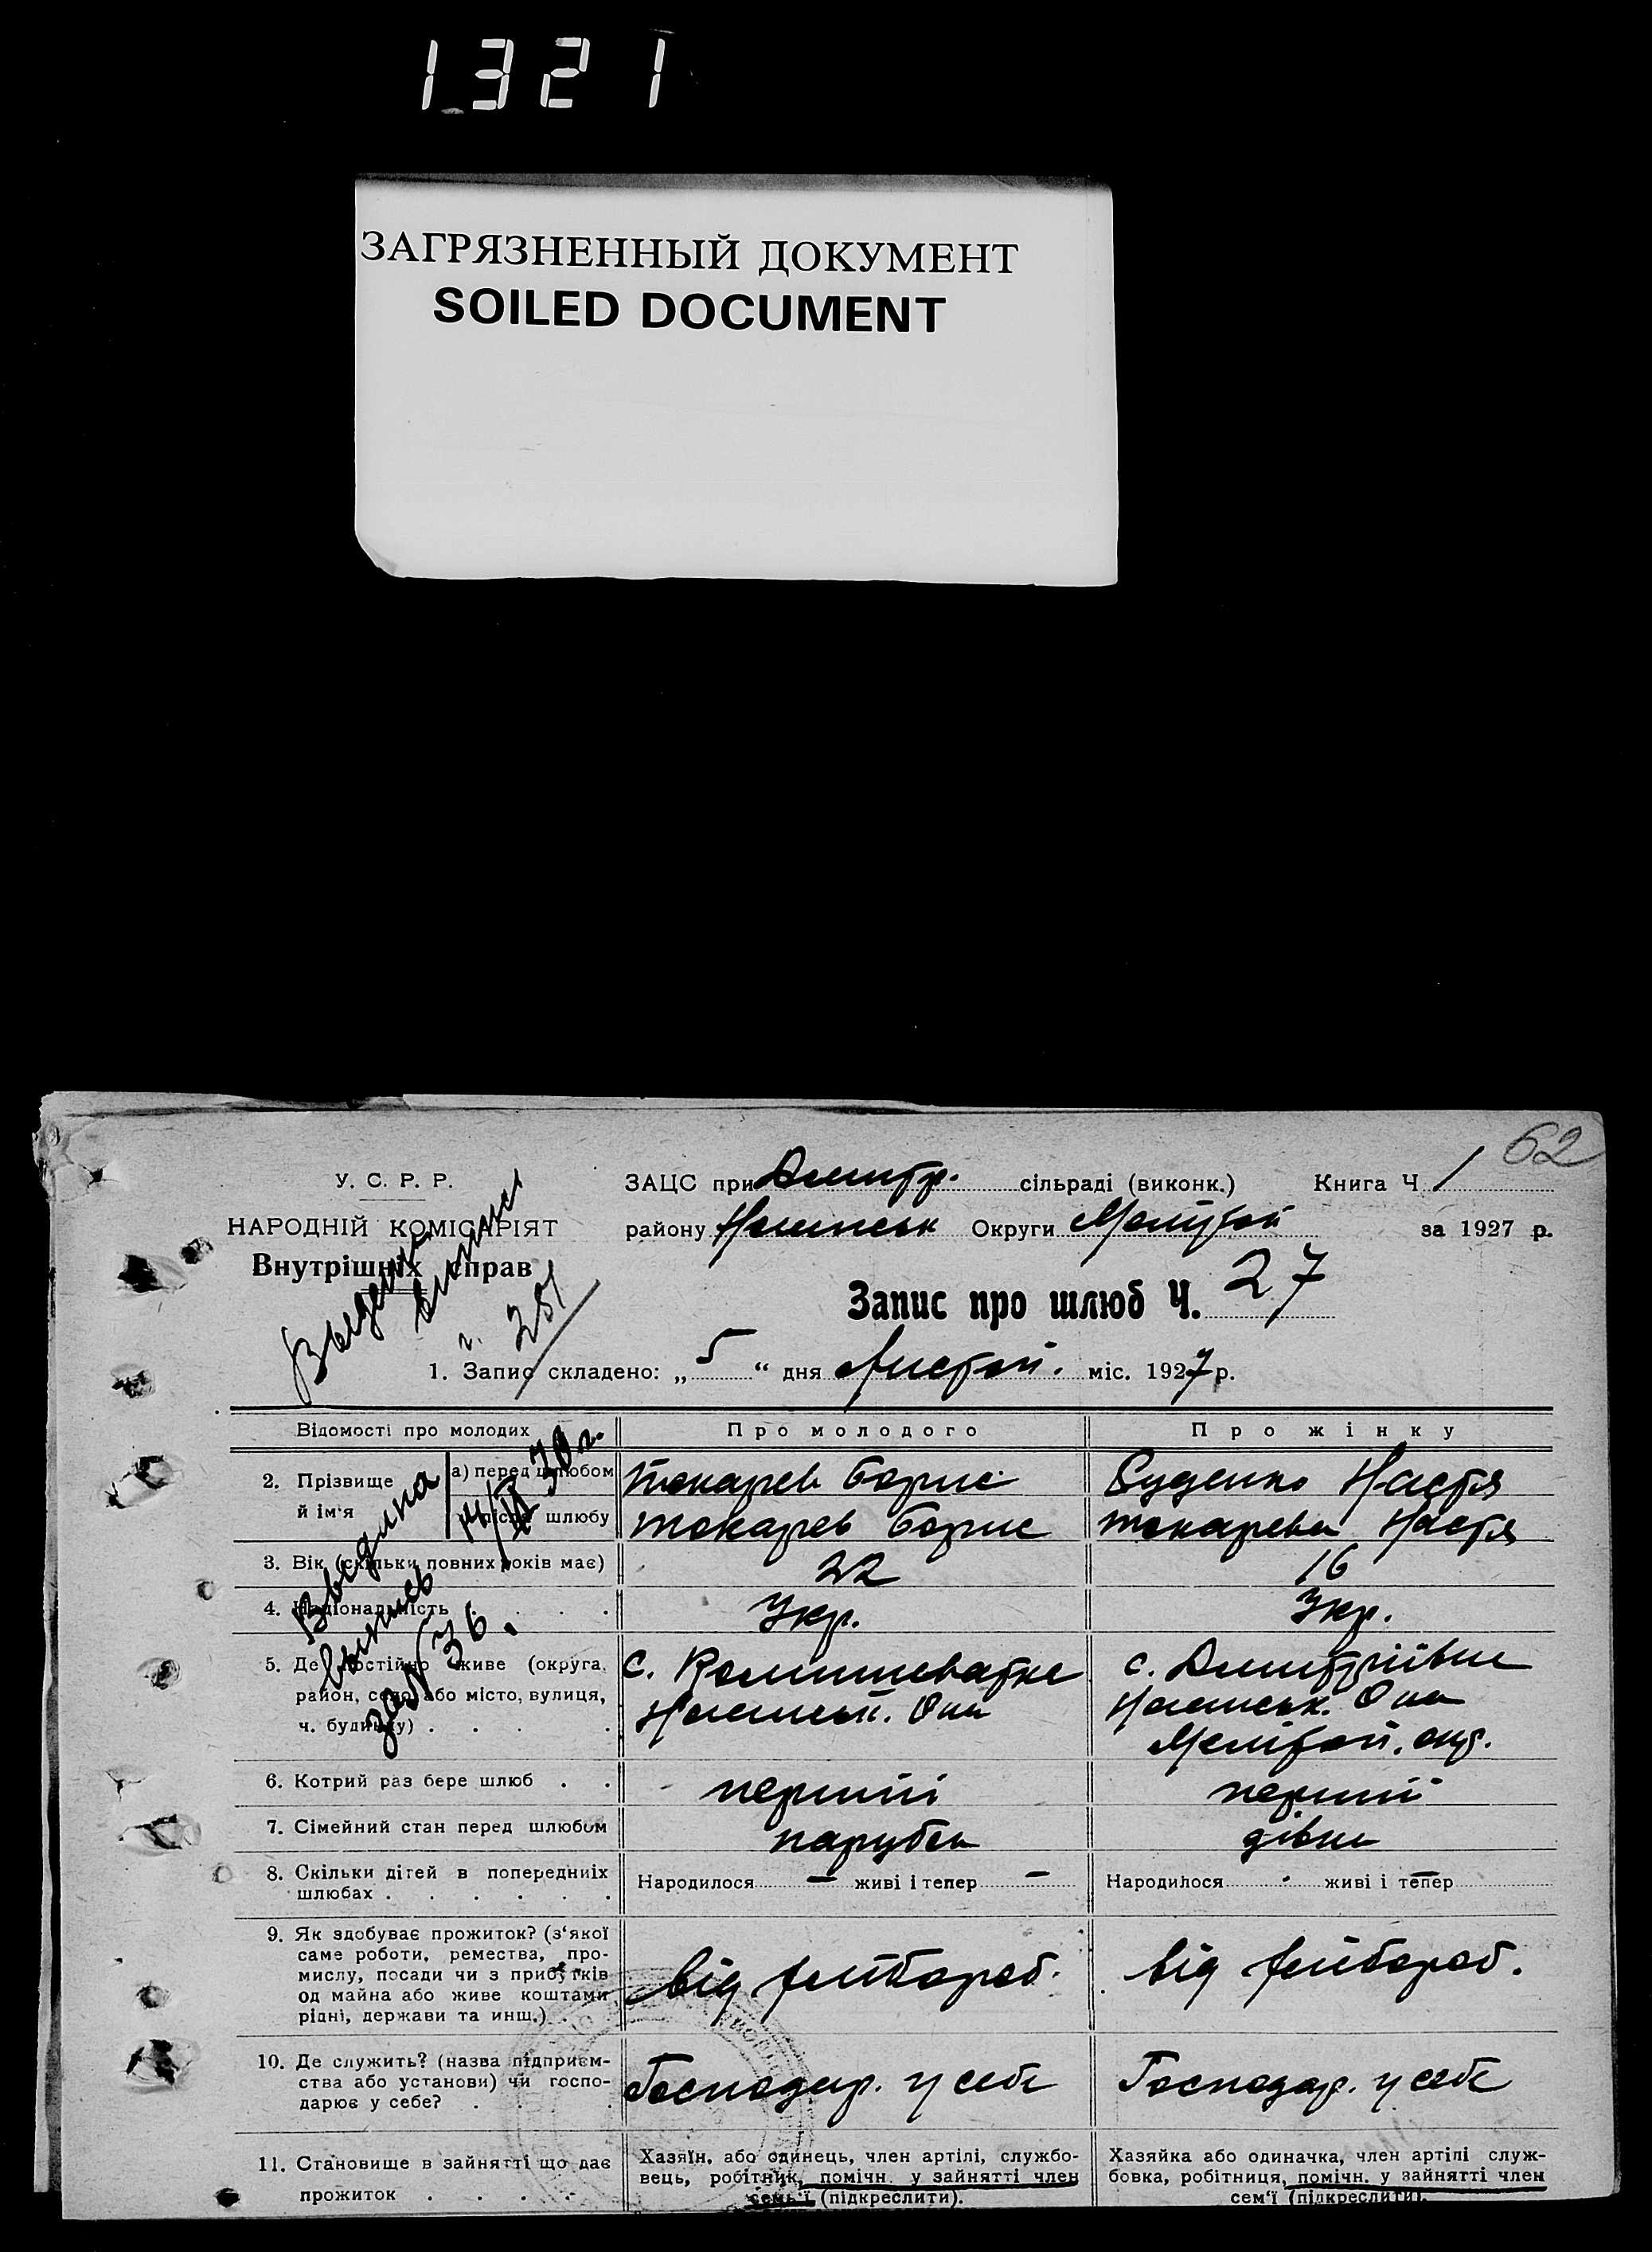 1321
ЗАГРЯЗНЕННЫЙ ДОКУМЕНТ
SOILED DOCUMENT
62
У. С. Р. Р.
НАРОДНІЙ КОМІСАРІЯТ
Внутрішніх справ
ЗАЦС при Дмитр. сільраді (виконк.) Книга Ч. 1
району Округи Меліtоп за 1927 р.
Запис про шлюб Ч. 27
ч. 251
1. Запис складено: „5“ дня Листоп. міс. 1927 р.
Відомості про молодих
Про молодого
Про жінку
2. Прізвище й ім'я
а) перед шлюбом
Токарев Борис
Буденко Настя
після шлюбу
Токарев Борис
Токарева Настя
3. Вік (скільки повних років має)
22
16
4. Національність
Укр.
Укр.
5. Де постійно живе (округа,
район, село, або місто, вулиця,
ч. будинку)
с.
с. Дмитріївка
Меліtоп. окр.
6. Котрий раз бере шлюб
перший
перший
7. Сімейний стан перед шлюбом
парубок
дівка
8. Скільки дітей в попередніх
шлюбах
Народилося — живі і тепер —
Народилося живі і тепер
9. Як здобуває прожиток? (з‘якої
саме роботи, ремества, про-
мислу, посади чи з прибутків
од майна або живе коштами
рідні, держави та инш.)
від хлібороб.
від хлібороб.
10. Де служить? (назва підприєм-
ства або установи) чи госпо-
дарює у себе?
Господар. у себе
Господар. у себе
11. Становище в зайнятті що дає
прожиток
Хазяїн, або одинець, член артілі, службо-
вець, робітник, помічн. у зайнятті член
семь‘ї (підкреслити).
Хазяйка або одиначка, член артілі служ-
бовка, робітниця, помічн. у зайнятті член
сем‘ї (підкреслити).